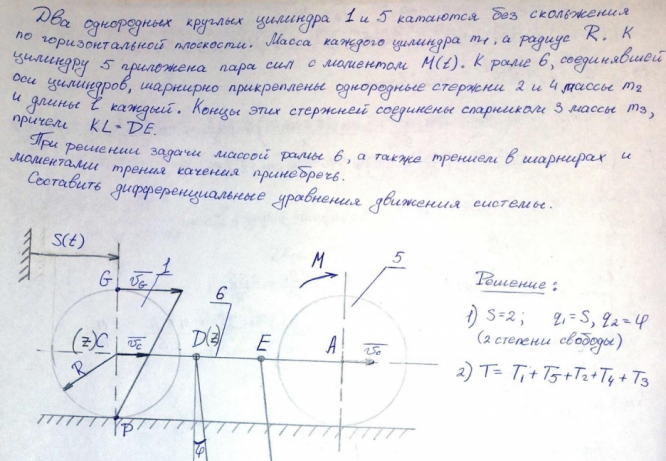 Два однородных круглых цилиндра 1 и 5 катаются без скольжения
по горизонтальной плоскости. Масса каждого цилиндра m₁, а радиус R. К
цилиндру 5 приложена пара сил с моментом M(t). К раме 6, соединявшей
оси цилиндров, шарнирно прикреплены однородные стержени 2 и 4 массы m₂
и длины l каждый. Концы этих стержней соединены спарником 3 массы m₃,
причем KL = DE.
При решении задачи массой рамы 6, а также трением в шарнирах и
моментами трения качения принебречь.
Составить дифференциальные уравнения движения системы.
S(t)
G
v̄_G
1
6
M
5
(Z) C
v̄_C
D(Z)
E
A
R
P
φ
Решение:
1) S=2; q₁=S, q₂=φ
(2 степени свободы)
2) T = T₁+T₅+T₂+T₄+T₃